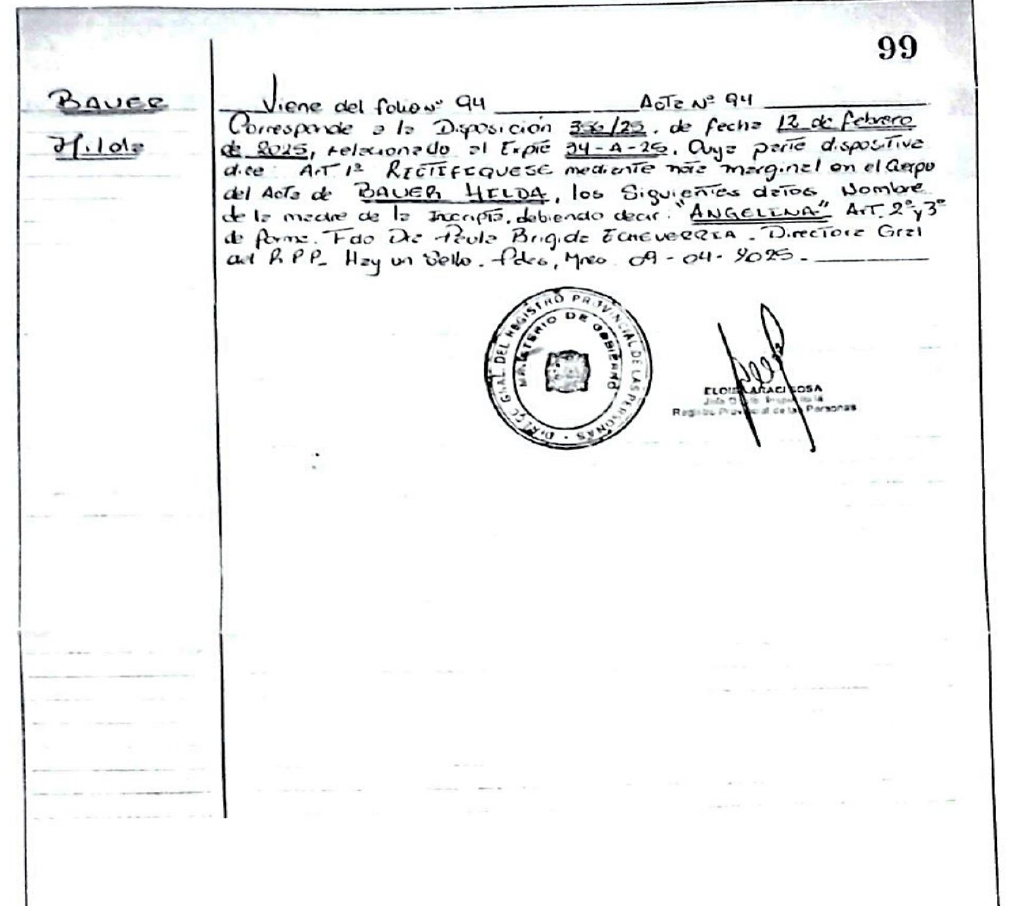 99
BAUER
Hilda
Viene del folio Nº 94 Acta Nº 94
Corresponde a la Disposición 356/25, de fecha 12 de febrero
de 2025, relacionado al Expte 34-A-25, Cuya parte dispositiva
dice Art 1º RECTIFIQUESE mediante nota marginal en el Cuerpo
del Acta de BAUER HILDA, los Siguientes datos Nombre
de la madre de la Inscripta, debiendo decir: "ANGELINA" Art. 2º y 3º
de forma. Fdo Dra Paula Brigida ECHEVERRIA. Directora Gral
del R.P.P. Hay un Sello. Pdas, Mnes 09-04-2025.
DIRECC. GRAL. DEL REGISTRO PROVINCIAL DE LAS PERSONAS
MINISTERIO DE GOBIERNO
ARACI SOSA
Registro Provincial de las Personas